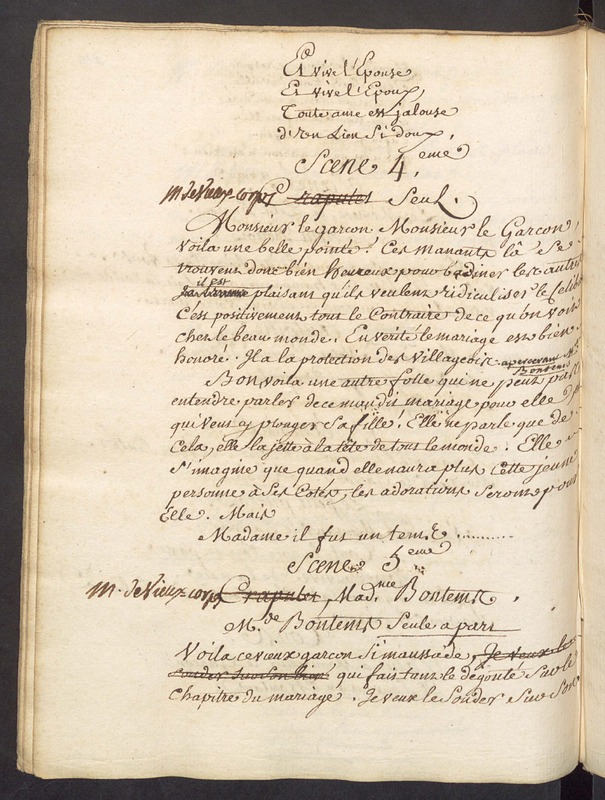 Et vive l'Epouse
Et vive l'Epoux,
Toute ame est jalouse
d'un Lien Si doux,
Scene 4.eme
M de Vieux-corps Craputet Seul.
Monsieur le garcon Monsieur le Garcon,
voila une belle pointe! Ces manants là Se
trouvent donc bien heureux pour badiner les autres
il est
plaisant qu'ils veulent ridiculiser le Celibat
C'est positivement tout le Contraire de ce qu'on voit
chez le beau monde. En verité le mariage est bien
honoré. Il a la protection des villageois apercevant Me
Bontems
Bon voila une autre folle qui ne peut pas
entendre parler de ce maudit mariage pour elle et
qui veut y plonger Sa fille! Elle ne parle que de
Cela, elle la jette à la tête de tout le monde. Elle
S'imagine que quand elle n'aura plus Cette jeune
personne à Ses Cotés, les adorations Seront pour
Elle. Mais
Madame il fut un tems..........
Scene 5.eme
M. de Vieux-corps Craputet, Mad.me Bontems.
M.de Bontems Seule a part
Voila ce vieux garcon Si maussade, Je veux le
Sonder Sur Son bien qui fait tant le degouté Sur le
Chapitre du mariage. Je veux le Sonder Sur Son